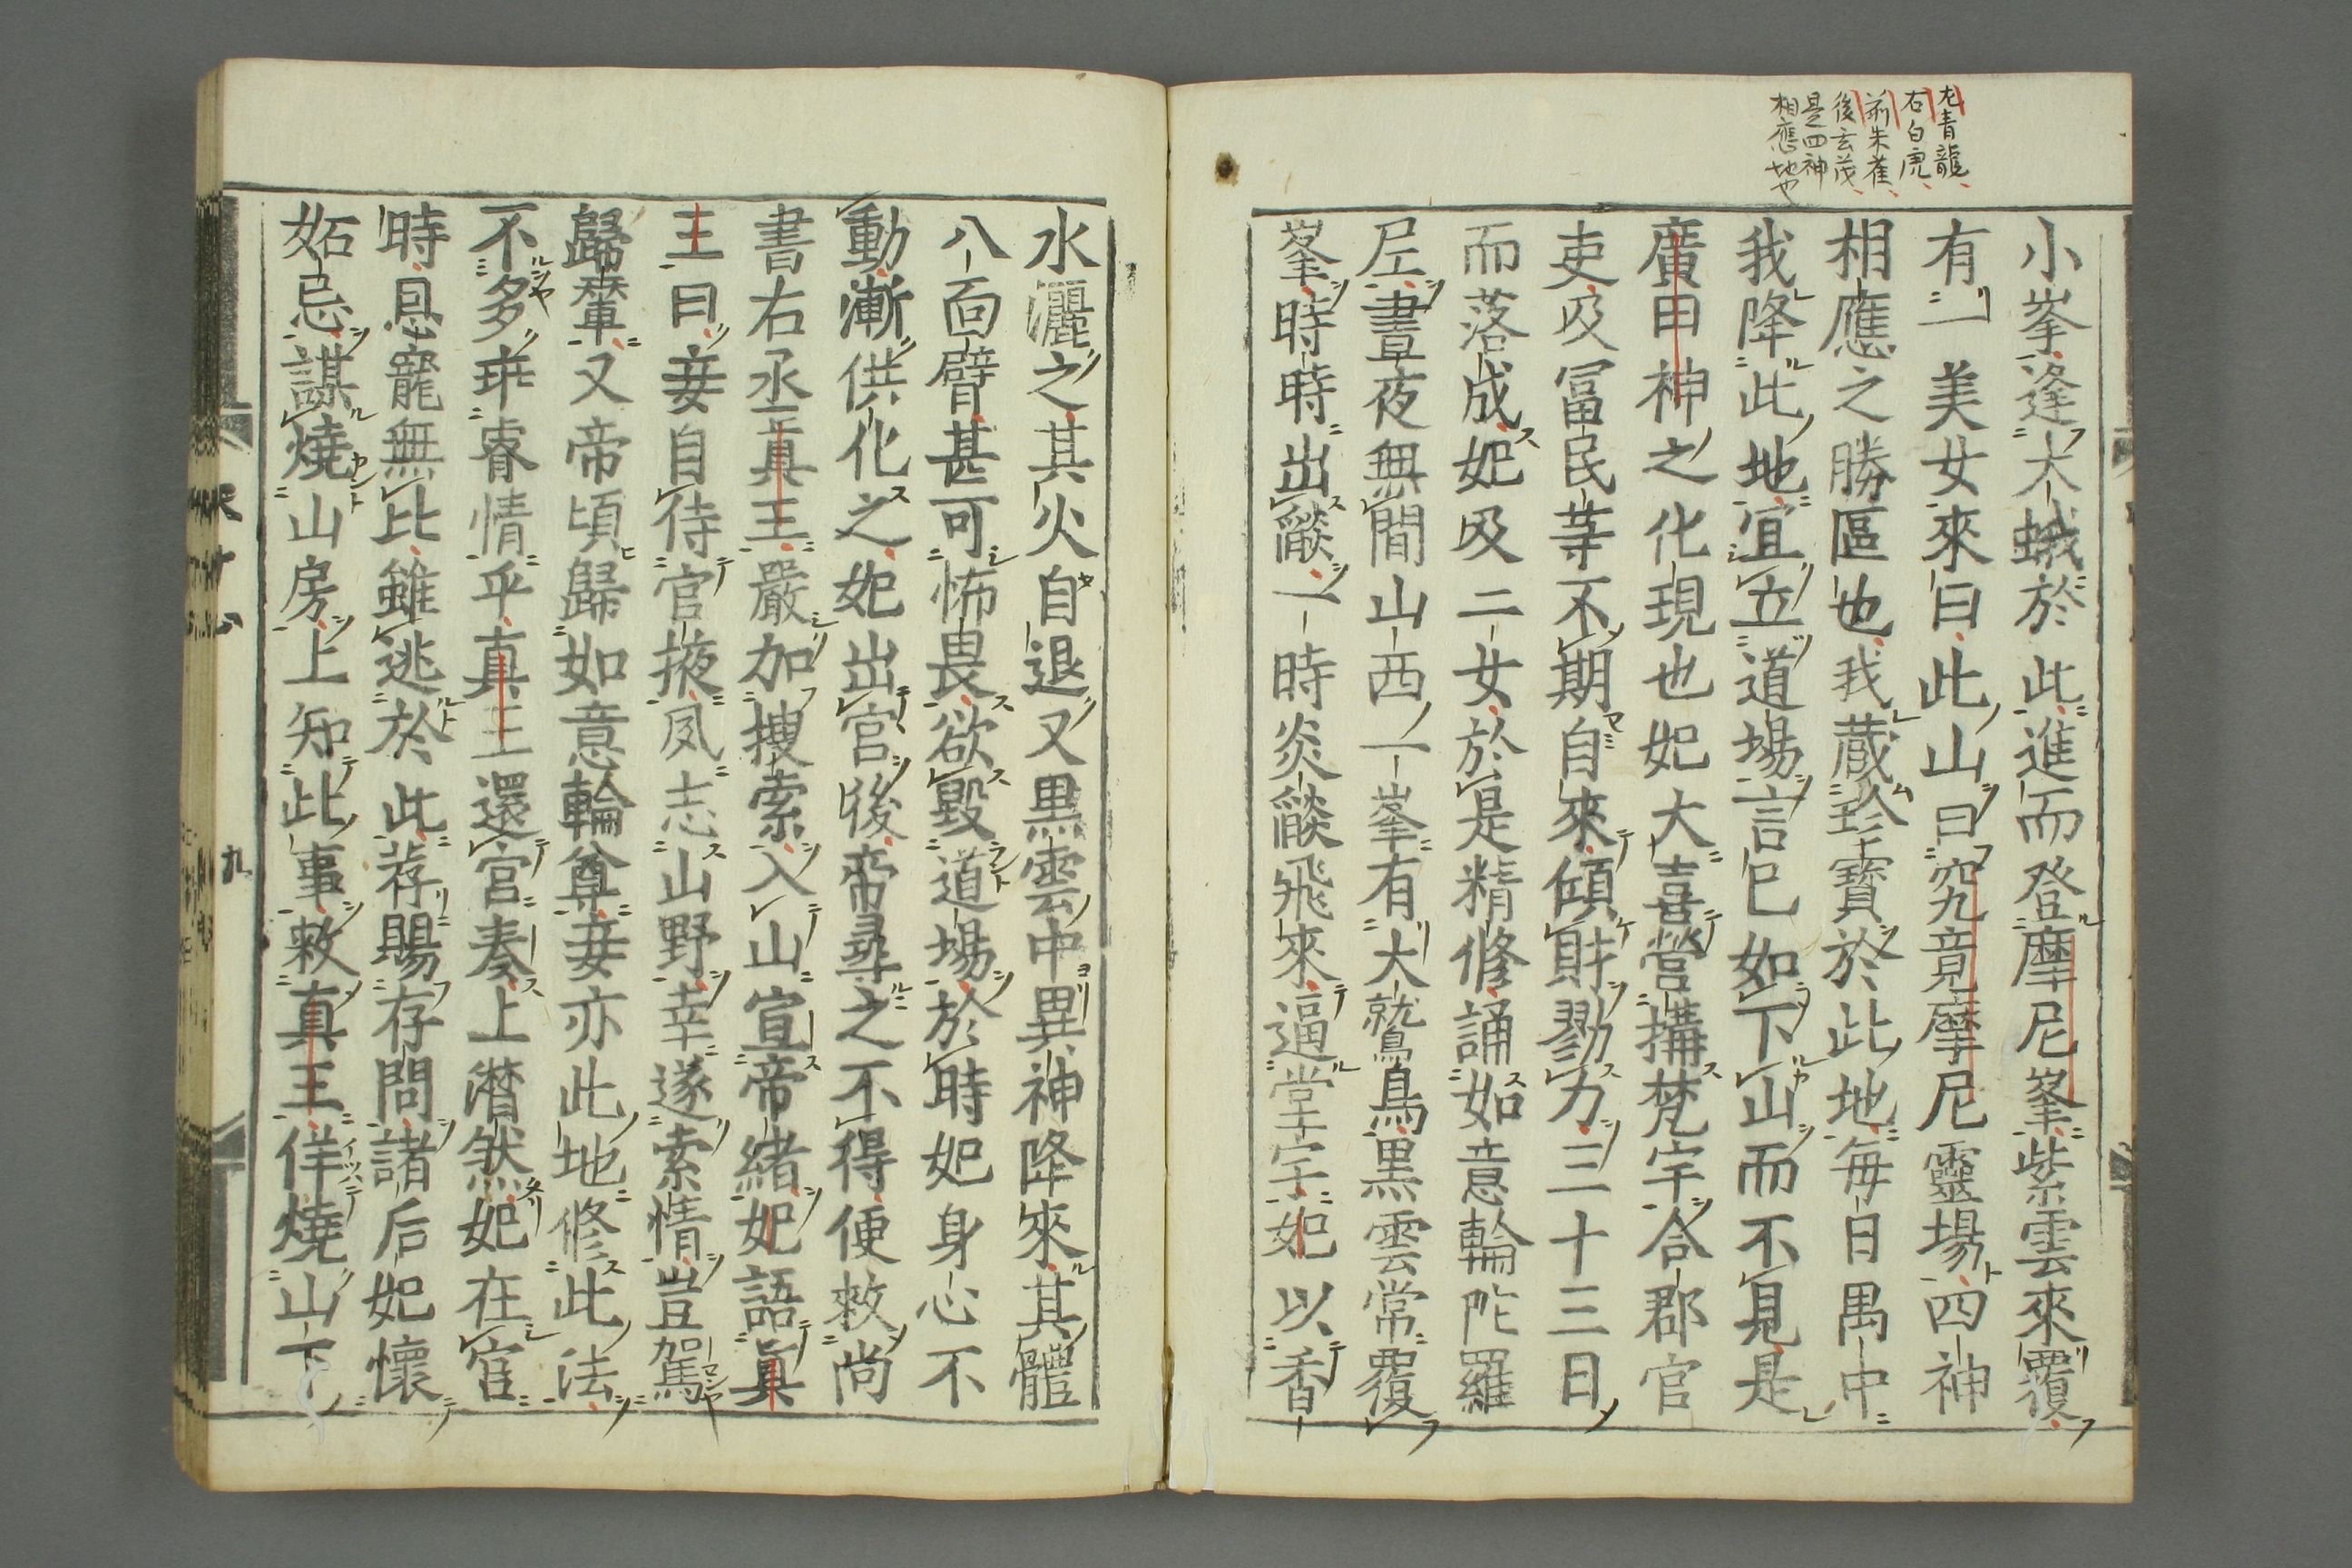 左青龍
右白虎
前朱雀
後玄茂
是四神
相應地也
小峯逢大蛾於此進而登摩尼峯紫雲來覆
有一美女來曰此山曰究竟摩尼靈場四神
相應之勝區也我蔵珍寶於此地毎日禺中
我降此地宜立道場言已如下山而不見是
廣田神之化現也妃大喜營搆梵宇合郡官
吏及冨民等不期自來傾財勠力三十三日
而落成妃及二女於是精修誦如意輪陀羅
尼晝夜無間山西一峯有大鷲鳥黒雲常覆
峯時時出燄一時炎燄飛來逼堂宇妃以香
水灑之其火自退又黒雲中異神降來其體
八面臂甚可怖畏欲毀道場於時妃身心不
動漸供化之妃出宮後帝尋之不得便敕尚
書右丞真王嚴加搜索入山宣帝緒妃語真
王曰妾自侍官掖夙志山野幸遂索情豈駕
歸輦又帝頃歸如意輪尊妾亦此地修此法
不多乖睿情乎真王還宮奏上潸然妃在宮
時恩寵無比雖逃於此荐賜存問諸后妃懷
妬忌謀燒山房上知此事敕真王佯燒山下
九